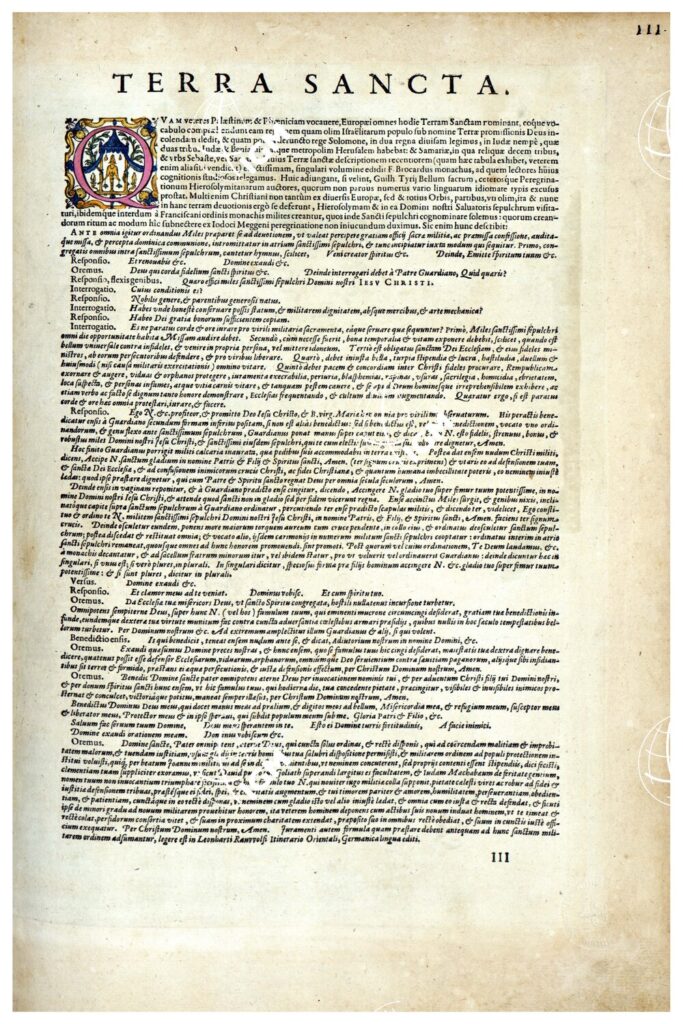 III
TERRA SANCTA.
QVAM veteres Palæstinam & Phœniciam vocauere, Europæi omnes hodie Terram Sanctam nominant, eoque vo-
cabulo comprehendunt eam quam olim Israëlitarum populo sub nomine Terræ promissionis Deus in-
colendam dedit, & defuncto rege Solomone, in dua regna diuisam legimus, in Iudæ nempè, quæ
duas tribus, Iudæ & Beniamin, eamque metropolim Herusalem habebat: & Samariæ, in qua reliquæ decem tribus,
& vrbs Sebaste, Huius Terræ sanctæ descriptionem recentiorem (quam hæc tabula exhibet, veterem
enim alias vendico.) sanctissimam, singulari volumine edidit F. Brocardus monachus, ad quem lectores huius
cognitionis studiosos relegamus. Huic adiungant, si velint, Guilh. Tyrij Bellum sacrum, ceterosque Peregrina-
tionum Hierosolymitanarum auctores, quorum non paruus numerus vario linguarum idiomate typis excusus
prostat. Multi enim Christiani non tantùm ex diuersis Europæ, sed & totius Orbis, partibus, vn olim, ita & nunc
in hanc terram deuotionis ergò se deferunt, Hierosolymam & in ea Domini nostri Saluatoris sepulchrum visita-
turi, ibidemque interdum à Franciscani ordinis monachis milites creantur, quos inde Sancti sepulchri cognominare solemus: quorum crean-
dorum ritum ac modum hîc subnectere ex Iodoci Meggeni peregrinatione non iniucundum duximus. Sic enim hunc describit:
ANTE omnia igitur ordinandus Miles præparet se ad deuotionem, vt valeat percipere gratiam officij sacræ militiæ, ac præmissa confessione, audita-
que missa, & percepta dominica communione, intromittatur in atrium sanctissimi sepulchri, & tunc incipiatur iuxta modum qui sequitur. Primo, con-
gregatis omnibus intra sanctissimum sepulchrum, cantetur hymnus, scilicet, Veni creator spiritus &c. Deinde, Emitte spiritum tuum &c.
Responsio. Et renouabis &c. Domine exaudi &c.
Oremus. Deus qui corda fidelium sancti spiritus &c. Deinde interrogari debet à Patre Guardiano, Quid quæris?
Responsio, flexis genibus. Quæro effici miles sanctissimi sepulchri Domini nostri IESV CHRISTI.
Interrogatio. Cuius conditionis es?
Responsio. Nobilis genere, & parentibus generosis natus.
Interrogatio. Habes vnde honestè conseruare possis statum, & militarem dignitatem, absque mercibus, & arte mechanica?
Responsio. Habeo Dei gratia bonorum sufficientem copiam.
Interrogatio. Es ne paratus corde & ore iurare pro virili militaria sacramenta, eaque seruare quæ sequuntur? Primò, Miles sanctissimi sepulchri
omni die opportunitate habita Missam audire debet. Secundò, cùm necesse fuerit, bona temporalia & vitam exponere debebit, scilicet, quando est
bellum vniuersale contra infideles, & venire in propria persona, vel mittere idoneum. Tertiò est obligatus sanctam Dei Ecclesiam, & eius fideles mi-
nistros, ab eorum persecutoribus defendere, & pro viribus liberare. Quartò, debet iniusta bella, turpia stipendia & lucra, hastiludia, duellum &
huiusmodi (nisi causa militaris exercitationis) omnino vitare. Quintò debet pacem & concordiam inter Christi fideles procurare, Rempublicam
exornare & augere, viduas & orphanos protegere, iuramenta execrabilia, periuria, blasphemias, rapinas, vsuras, sacrilegia, homicidia, ebrietatem,
loca suspecta, & personas infames, atque vitia carnis vitare, & tanquam pestem cauere, & se apud Deum hominesque irreprehensibilem exhibere, ac
etiam verbo ac facto se dignum tanto honore demonstrare, Ecclesias frequentando, & cultum diuinum augmentando. Quæratur ergo, si est paratus
corde & ore hæc omnia protestari, iurare, & facere.
Responsio. Ego N. &c. profiteor, & promitto Deo Iesu Christo, & B. virg. Mariæ hæc omnia pro viribus obseruaturum. His peractis bene-
dicatur ensis à Guardiano secundum formam inferius positam, si non est aliàs benedictus: sed si benedictus est, benedictionem, vocato vno ordi-
nandorum, & genu flexo ante sanctissimum sepulchrum, Guardianus ponat manus super caput eius, & dicat, N. esto fidelis, strenuus, bonus, &
robustus miles Domini nostri Jesu Christi, & sanctissimi eiusdem sepulchri, qui te cum electis
Hoc finito Guardianus porrigit militi calcaria inaurata, quæ pedibus suis accommodabis in terra Postea dat ensem nudum Christi militi,
dicens, Accipe N. sanctum gladium in nomine Patris & Filij & Spiritus sancti, Amen, (ter signum crucis imprimens) & vtaris eo ad defensionem tuam,
& sanctæ Dei Ecclesiæ, & ad confusionem inimicorum crucis Christi, ac fidei Christianæ, & quantum humana imbecillitate poteris, eo neminem iniustè
lædas: quod ipse præstare dignetur, qui cum Patre & Spiritu sancto regnat Deus per omnia secula seculorum, Amen.
Deinde ensis in vaginam reponitur, & à Guardiano prædicto ense cingitur, dicendo, Accingere N. gladio tuo super fœmur tuum potentissime, in no-
mine Domini nostri Iesu Christi, & attende quod sancti non in gladio sed per fidem vicerunt regna. Ense accinctus Miles surgit, & genibus nixis, incli-
natoque capite supra sanctum sepulchrum à Guardiano ordinatur, percutiendo ter ense prædicto scapulas militis, & dicendo ter, videlicet, Ego consti-
tuo & ordino te N. militem sanctissimi sepulchri Domini nostri Jesu Christi, in nomine Patris, & Filij, & Spiritus sancti, Amen. faciens ter signum
crucis. Deinde osculetur eundem, ponens more maiorum torquem aureum cum cruce pendente, in collo eius, & ordinatus deosculetur sanctum sepul-
chrum: postea discedat & restituat omnia; & vocato alio, ijsdem cærimonijs in numerum militum sancti sepulchri cooptatur: ordinatus interim in atrio
sancti sepulchri remaneat, quousque omnes ad hunc honorem promouendi, sint promoti. Post quorum vel cuius ordinationem, Te Deum laudamus, &c.
à monachis decantatur, & ad sacellum fratrum minorum itur, vel ibidem statur, pro vt voluerit vel ordinauerit Guardianus: deinde dicuntur hæc in
singulari, si vnus est; si verò plures, in plurali. In singulari dicitur, speciosus forma præ filijs hominum accingere N. &c. gladio tuo super fœmur tuum
potentissime: & si sunt plures, dicitur in plurali.
Versus. Domine exaudi &c.
Responsio. Et clamor meus ad te veniat. Dominus vobisc. Et cum spiritu tuo.
Oremus. Da Ecclesiæ tuæ misericors Deus, vt sancto Spiritu congregata, hostili nullatenus incursione turbetur.
Omnipotens sempiterne Deus, super hunc N. (vel hos) famulum tuum, qui eminenti mucrone circumcingi desiderat, gratiam tuæ benedictionis in-
funde, eundemque dextera tuæ virtute munitum fac contra cuncta aduersantia cælestibus armari præsidijs, quibus nullis in hoc sæculo tempestatibus bel-
lorum turbetur. Per Dominum nostrum &c. Ad extremum amplectitur illum Guardianus & alij, si qui volent.
Benedictio ensis. Is qui benedicit, teneat ensem nudum ante se, & dicat, Adiutorium nostrum in nomine Domini, &c.
Oremus. Exaudi quæsumus Domine preces nostras, & hunc ensem, quo se famulus tuus hîc cingi desiderat, maiestatis tuæ dextra dignare bene-
dicere, quatenus possit esse defensor Ecclesiarum, viduarum, orphanorum, omniumque Deo seruientium contra sæuitiam paganorum, alijsque sibi insidian-
tibus sit terror & formido, præstans ei æquæ persecutionis, & iustæ defensionis effectum, per Christum Dominum nostrum, Amen.
Oremus. Benedic Domine sancte pater omnipotens æterne Deus per inuocationem nominis tui, & per aduentum Christi filij tui Domini nostri,
& per donum spiritus sancti hunc ensem, vt hic famulus tuus, qui hodierna die, tua concedente pietate, præcingitur, visibiles & inuisibiles inimicos pro-
sternat & conculcet, victoriáque potitus, maneat semper illæsus, per Christum Dominum nostrum, Amen.
Benedictus Dominus Deus meus, qui docet manus meas ad prælium, & digitos meos ad bellum, Misericordia mea, & refugium meum, susceptor meus
& liberator meus, Protector meus & in ipso speraui, qui subdit populum meum sub me. Gloria Patri & Filio, &c.
Saluum fac seruum tuum Domine, Deus meus sperantem in te. Esto ei Domine turris fortitudinis, A facie inimici.
Domine exaudi orationem meam. Dominus vobiscum &c.
Oremus. Domine sancte, Pater omnipotens, æterne Deus, qui cuncta solus ordinas, & rectè disponis, qui ad coërcendam malitiam & improbi-
tatem malorum, & tuendam iustitiam, vsum gladij in terris hominibus tua salubri dispositione permisisti, & militarem ordinem ad populi protectionem in-
stitui voluisti, quiq́; per beatum Joannem militibus ad se in deserto venientibus, vt neminem concuterent, sed proprijs contenti essent stipendijs, dici fecisti,
clementiam tuam suppliciter exoramus, Goliath superandi largitus es facultatem, & Iudam Machabæum de feritate gentium,
nomen tuum non inuocantium triumphare fecisti: famulo tuo N. qui nouiter iugo militiæ colla supponit, pietate cælesti vires ac robur ad fidei &
iustitiæ defensionem tribuas, præstesque ei fidei, spei, charitatis augmentum, & tui timorem pariter & amorem, humilitatem, perseuerantiam, obedien-
tiam, & patientiam, cunctáque in eo rectè disponas, vt neminem cum gladio isto vel alio iniustè lædat, & omnia cum eo iusta & recta defendat, & sicuti
ipse de minori gradu ad nouum militarem prouehitur honorem, ita veterem hominem deponens cum actibus suis nouum induat hominem, vt te timeat &
rectè colat, perfidorum consortia vitet, & suam in proximum charitatem extendat, præposito suo in omnibus rectè obediat, & suum in cunctis iustè offi-
cium exequatur. Per Christum Dominum nostrum, Amen. Iuramenti autem formula quam præstare debent antequam ad hunc sanctum mili-
tarem ordinem adsumantur, legere est in Leonharti Rauwolfs Itinerario Orientali, Germanica lingua editi.
III